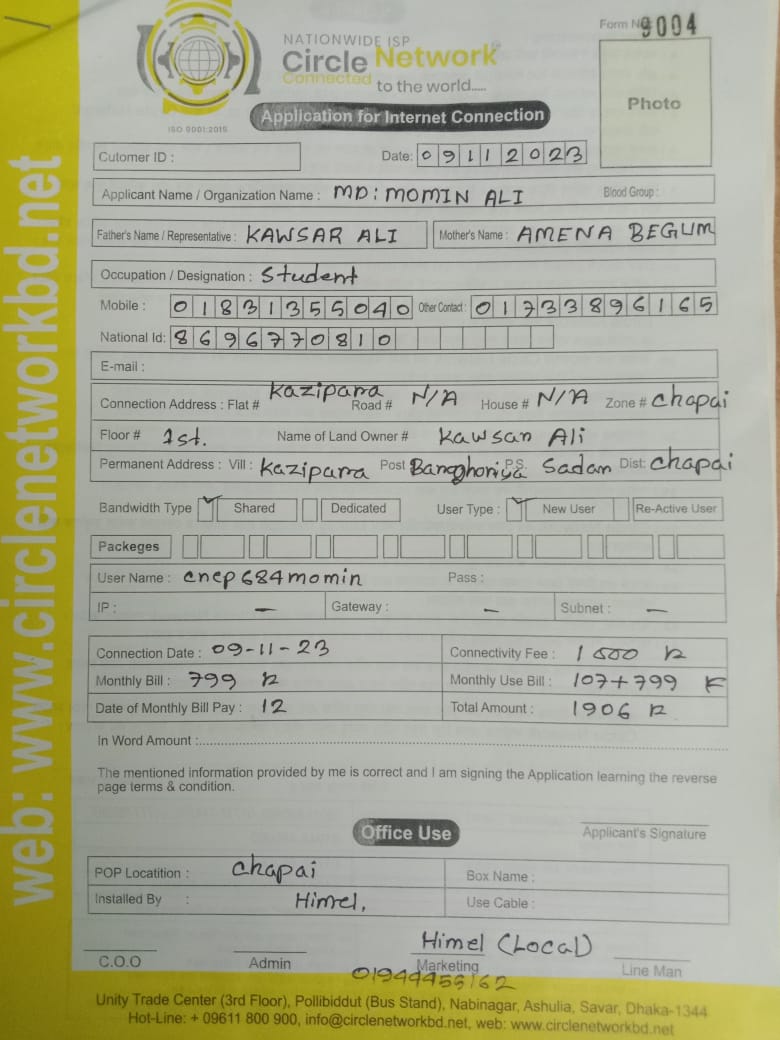 Form No 9004
NATIONWIDE ISP
Circle Network
Connected to the world.....
ISO 9001:2015
Application for Internet Connection
Photo
Cutomer ID :
Date: 09112023
Applicant Name / Organization Name : MD: MOMIN ALI Blood Group :
Father's Name / Representative : KAWSAR ALI Mother's Name : AMENA BEGUM
Occupation / Designation : Student
Mobile : 01831355040 Other Contact : 01733896165
National Id: 8696770810
E-mail :
Connection Address : Flat # Kazipara Road # N/A House # N/A Zone # chapai
Floor # 1st. Name of Land Owner # Kawsar Ali
Permanent Address : Vill : Kazipara Post Baroghoriya P.S. Sadar Dist: chapai
Bandwidth Type ✓ Shared Dedicated User Type : ✓ New User Re-Active User
Packeges
User Name : cnep684momin Pass :
IP : — Gateway : — Subnet : —
Connection Date : 09-11-23 Connectivity Fee : 1000
Monthly Bill : 799 Monthly Use Bill : 107+799
Date of Monthly Bill Pay : 12 Total Amount : 1906
In Word Amount :
The mentioned information provided by me is correct and I am signing the Application learning the reverse
page terms & condition.
Applicant's Signature
Office Use
POP Locatition : chapai Box Name :
Installed By : Himel, Use Cable :
Himel (Local)
C.O.O Admin Marketing Line Man
Unity Trade Center (3rd Floor), Pollibiddut (Bus Stand), Nabinagar, Ashulia, Savar, Dhaka-1344
Hot-Line: + 09611 800 900, info@circlenetworkbd.net, web: www.circlenetworkbd.net
web: www.circlenetworkbd.net